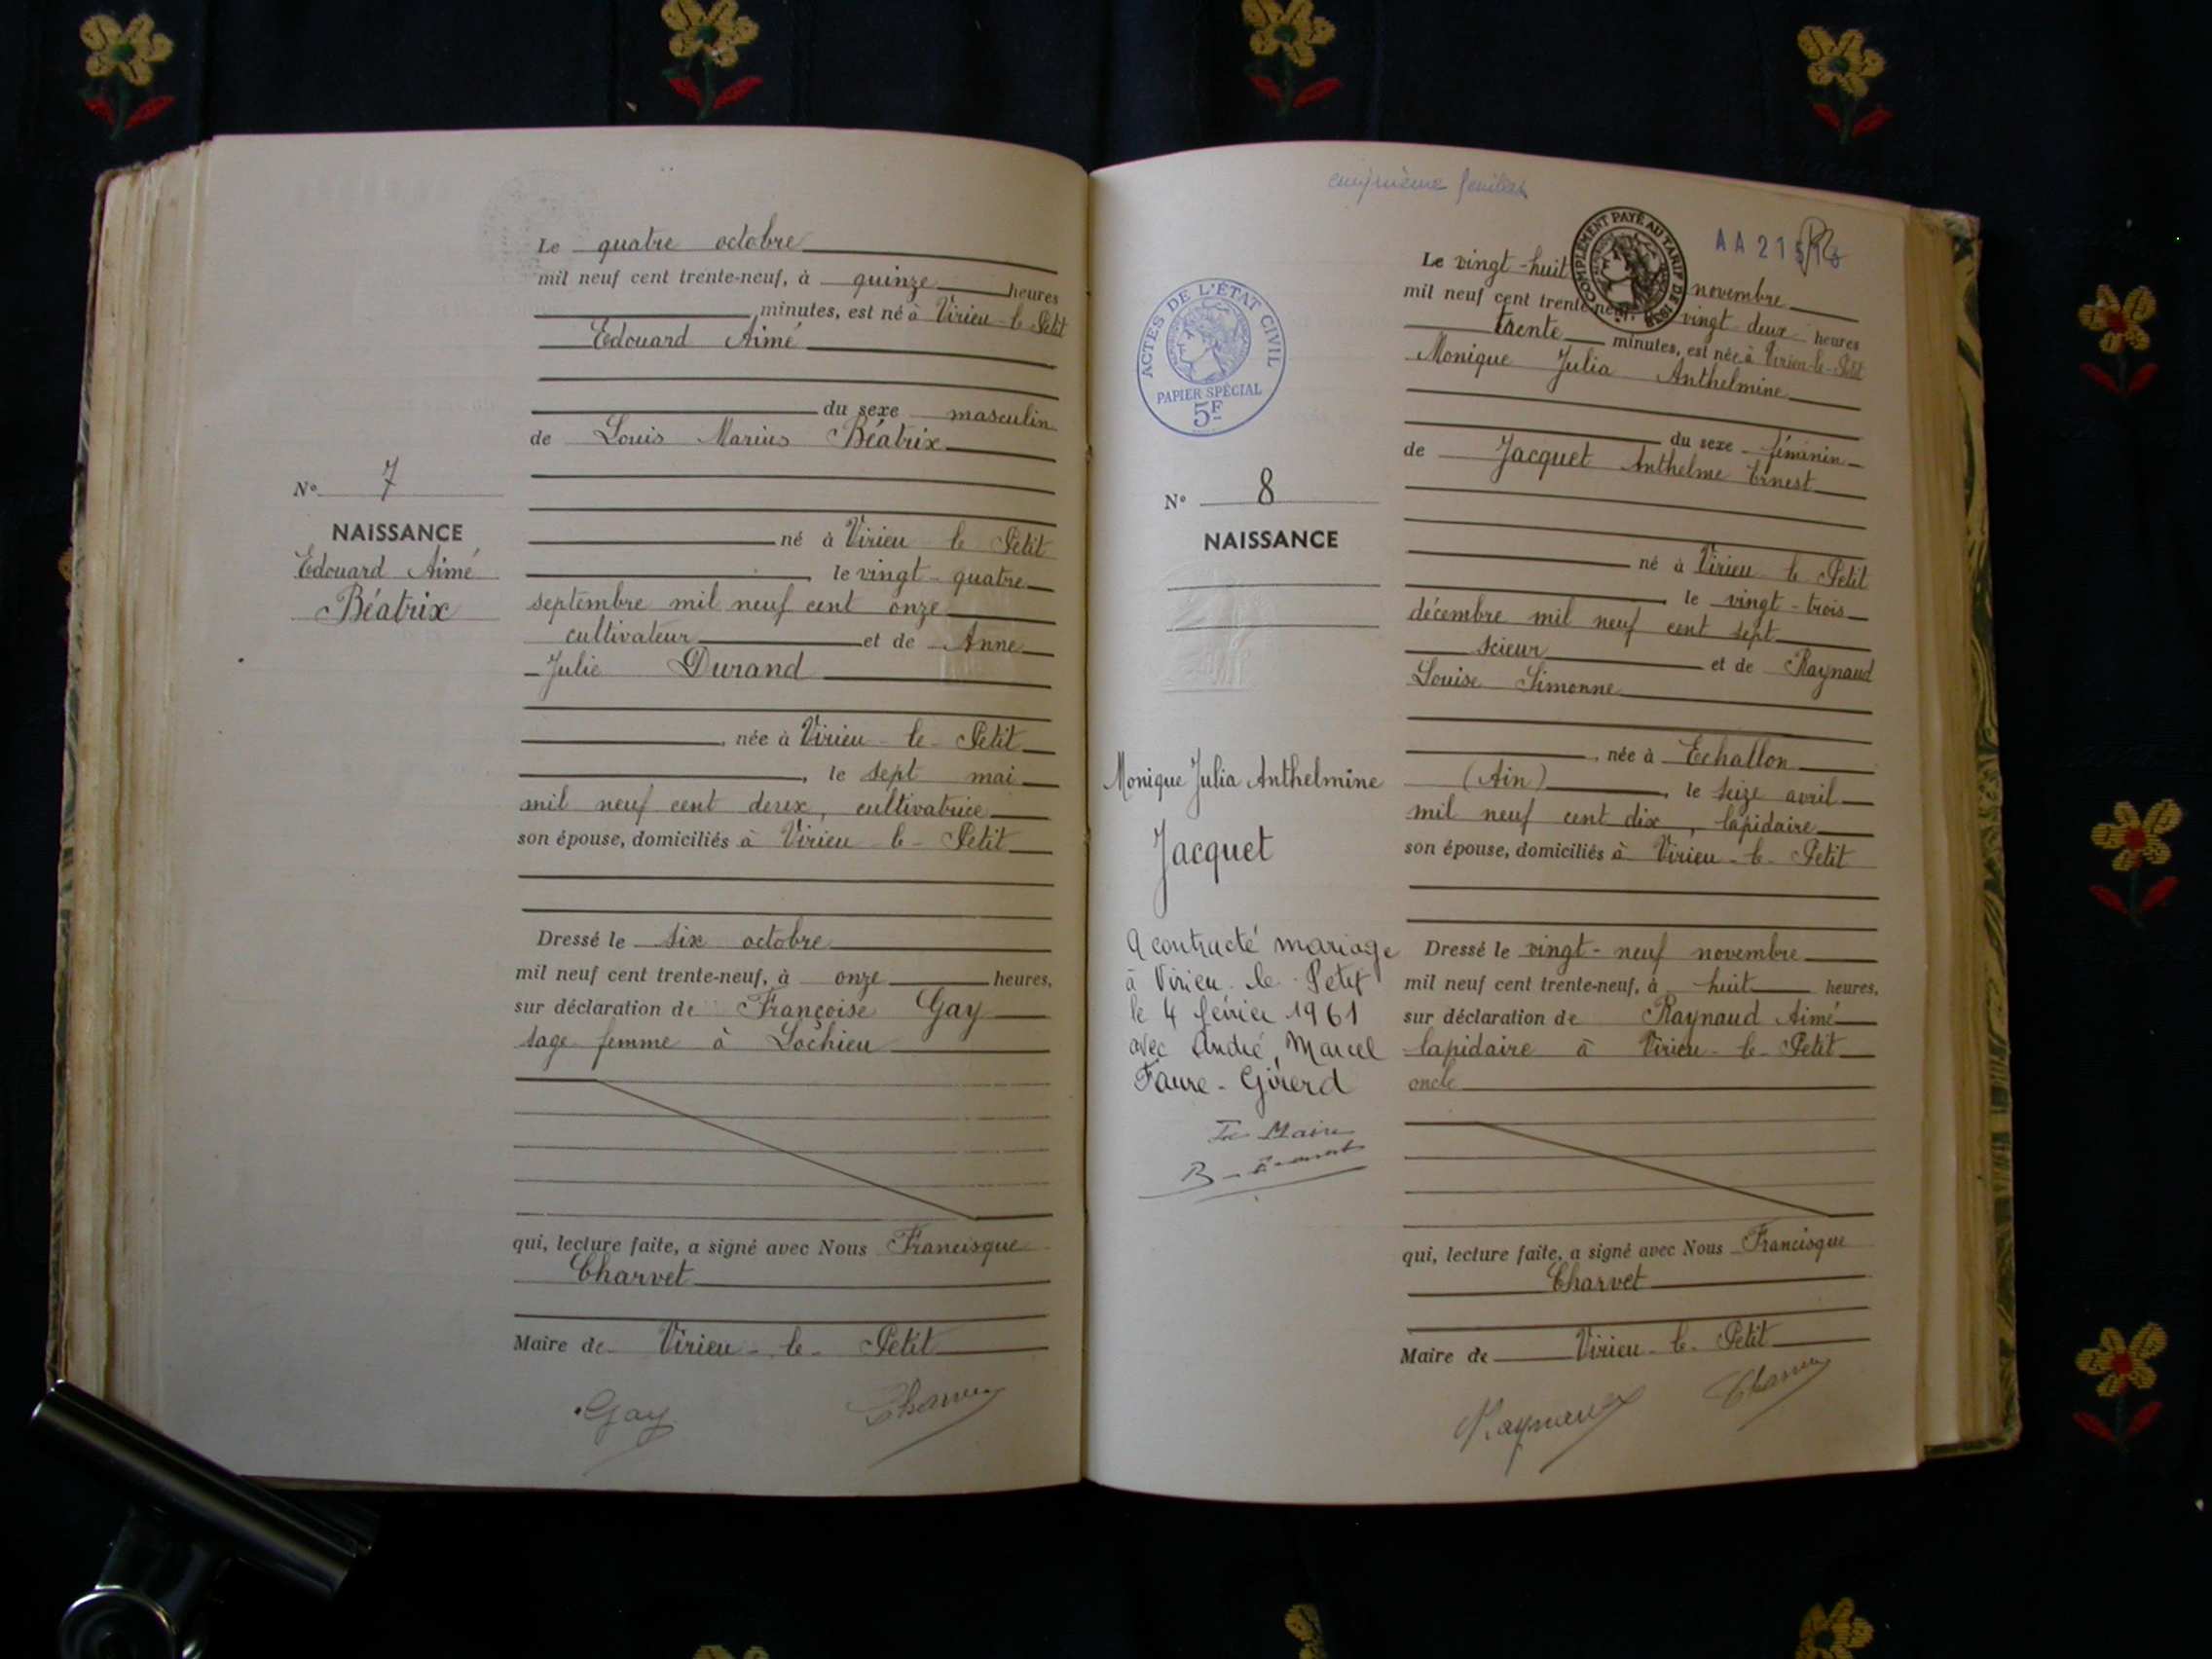 Le quatre octobre
mil neuf cent trente-neuf, à quinze heures
minutes, est né à Virieu-le-Petit
Edouard Aimé
du sexe masculin
de Louis Marius Béatrix
né à Virieu le Petit
le vingt-quatre
septembre mil neuf cent onze
cultivateur et de Anne
Julie Durand
, née à Virieu-le-Petit
, le sept mai
mil neuf cent deux, cultivatrice
son épouse, domiciliés à Virieu-le-Petit
Dressé le six octobre
mil neuf cent trente-neuf, à onze heures,
sur déclaration de Françoise Gay
sage femme à Lochieu
qui, lecture faite, a signé avec Nous Francisque
Charvet
Maire de Virieu-le-Petit
Gay
N° 7
NAISSANCE
Edouard Aimé
Béatrix
AA 215
ACTES DE L'ÉTAT CIVIL
PAPIER SPÉCIAL
5F
COMPLÉMENT PAYÉ AU TARIF DE 1938
Le vingt-huit novembre
mil neuf cent trente-neuf, vingt deux heures
trente minutes, est née à Virieu-le-Petit
Monique Julia Anthelmine
du sexe féminin
de Jacquet Anthelme Ernest
né à Virieu le Petit
le vingt-trois
décembre mil neuf cent sept
scieur et de Raynaud
Louise Simonne
, née à Echallon
(Ain), le seize avril
mil neuf cent dix, lapidaire
son épouse, domiciliés à Virieu-le-Petit
Dressé le vingt-neuf novembre
mil neuf cent trente-neuf, à huit heures,
sur déclaration de Raynaud Aimé
lapidaire à Virieu-le-Petit
oncle
qui, lecture faite, a signé avec Nous Francisque
Charvet
Maire de Virieu-le-Petit
Raynaud
N° 8
NAISSANCE
Monique Julia Anthelmine
Jacquet
A contracté mariage
à Virieu-le-Petit
le 4 février 1961
avec André, Marcel
Faure-Girerd
Le Maire